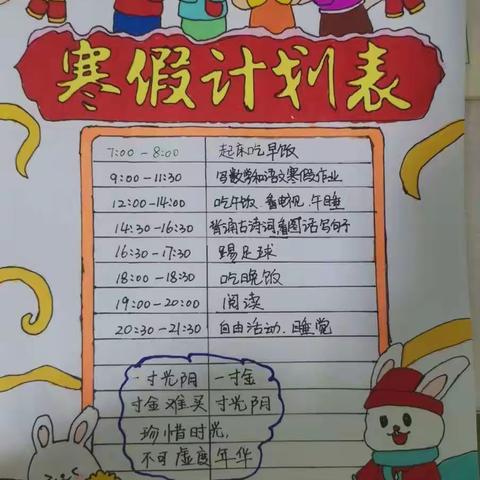 寒假计划表
7:00-8:00 起床吃早饭
9:00-11:30 写数学和语文寒假作业
12:00-14:00 吃午饭.看电视.午睡
14:30-16:30 背诵古诗词,看图话写句子
16:30-17:30 踢足球
18:00-18:30 吃晚饭
19:00-20:00 阅读
20:30-21:30 自由活动.睡觉
一寸光阴 一寸金
寸金难买 寸光阴
珍惜时光,
不可虚度年华